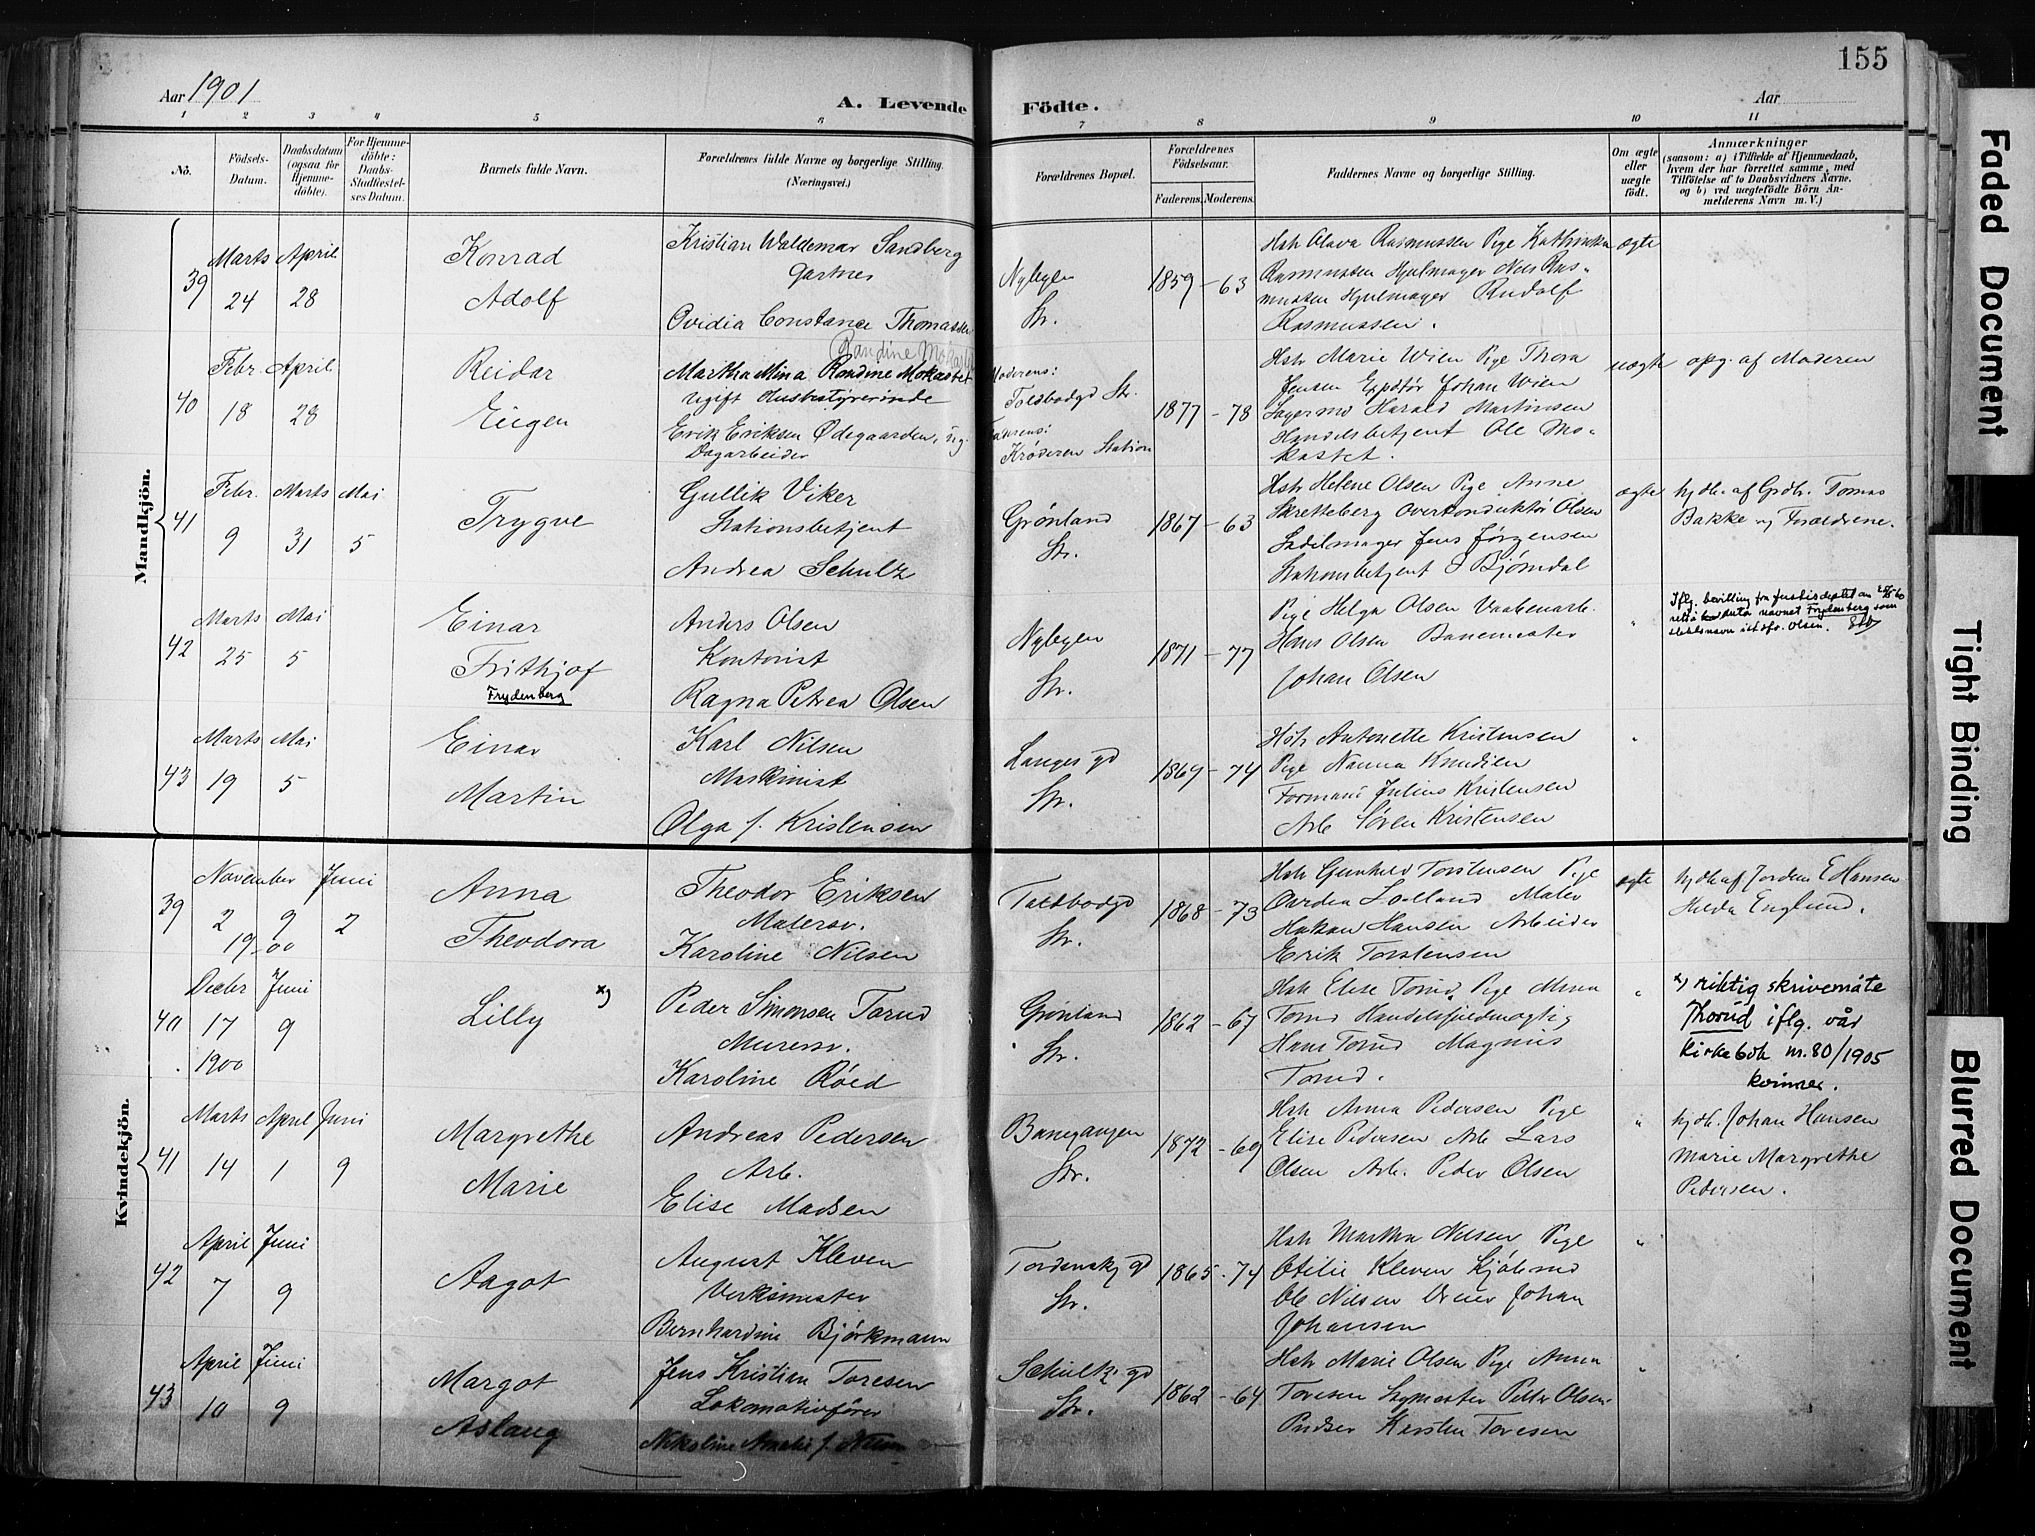 155
Aar 1901
A. Levende Födte.
Aar
1 2 3 4 5 6 7 8 9 10 11
No.
Födsels-Datum.
Daabsdatum (ogsaa for Hjemmedöbte).
For Hjemmedöbte: Daabs-Stadfæstelses Datum.
Barnets fulde Navn.
Forældrenes fulde Navne og borgerlige Stilling.
(Næringsvei.)
Forældrenes Bopæl.
Forældrenes Födselsaar.
Faderens. Moderens.
Faddernes Navne og borgerlige Stilling.
Om ægte eller uægte födt.
Anmærkninger
(saasom: a) i Tilfælde af Hjemmedaab, hvem der har forrettet samme, med Tilföielse af to Daabsvidners Navne, og b) ved uægtefödte Börn Anmelderens Navn m. V.)
Mandkjön.
39
Marts April
24 28
Konrad
Adolf
Kristian Waldemar Sandberg
Gartner
Ovidia Constance Thomassen
Nybyen
Str.
1859 - 63
Hstr Olava Rasmussen Pige Kathrinka
Rasmussen Hjulmager Nils Ras-
mussen Hjulmager Rudolf
Rasmussen.
ægte
40
Febr. April
18 28
Reidar
Eugen
Martha Mina Randine Mokastet
ugift Husbestyrerinde
Erik Eriksen Ødegaarden, ug.
Dagarbeider
Moderens:
Toldbodgd Str.
Faderens:
Krøderen Station
1877 - 78
Hstr Marie Wien Pige Thora
Jensen Expdtør Johan Wien
Harald Martinsen
Handelsbetjent Ole Mo-
kastet.
uægte
opg. af Moderen
41
Febr. Marts Mai
9 31 5
Trygve
Gullik Viker
Stationsbetjent
Andrea Schulz
Grønland
Str.
1867 - 63
Hstr Helene Olsen Pige Anne
Skretteberg Overkonduktør Olsen
Sadelmager Jens Jørgensen
Stationsbetjent S Bjørndal
ægte
hjdbt. af Grdbr. Tomas
Bakke og Forældrene.
42
Marts Mai
25 5
Einar
Frithjof
Frydenberg
Anders Olsen
Kontorist
Ragna Petrea Olsen
Nybyen
Str.
1871 - 77
Pige Helga Olsen Vaabenarb.
Hans Olsen Banemester
Johan Olsen
"
Iflg. bevilling fra Justisdeptet av
navnet Frydenberg som
slektsnavn istdfr. Olsen.
43
Marts Mai
19 5
Einar
Martin
Karl Nilsen
Maskinist
Olga f. Kristensen
Langes gd
Str.
1869 - 74
Hstr Antonette Kristensen
Pige Nanna Knudsen
Formand Julius Kristensen
Arb Søren Kristensen
"
Kvindekjön.
39
November Juni
2 9 2
1900
Anna
Theodora
Theodor Eriksen
Malersv.
Karoline Nilsen
Toldbodgd
Str.
1868 - 73
Hstr Gunhild Torstensen Pige
Ovidia Lolland Maler
Hakan Hansen Arbeider
Erik Torstensen
ægte
hjdbt af Jordem E Hansen
Hilda Englund.
40
Decbr Juni
17 9
1900
Lilly x)
Peder Simonsen Torud
Muresv.
Karoline Røed
Grønland
Str.
1862 - 67
Hstr Elise Torud Pige Mina
Torud Handelsfuldmægtig
Hans Torud Magnus
Torud.
"
x) riktig skrivemåte
Thorud iflg. vår
kirkebok nr. 80/1905
kvinner.
41
Marts April Juni
14 1 9
Margrethe
Marie
Andreas Pedersen
Arb.
Elise Madsen
Banegangen
Str.
1872 - 69
Hstr Anna Pedersen Pige
Elise Pedersen Arb Lars
Olsen Arb. Peder Olsen
"
hjdbt. Johan Hansen
Marie Margrethe
Pedersen.
42
April Juni
7 9
Aagot
August Kleven
Verksmester
Bernhardine Bjørkmann
Tordensk gd
Str.
1865 - 74
Hstr Martha Nilsen Pige
Otilie Kleven Kjøbmd
Ole Nilsen Johan
Johansen
"
43
April Juni
10 9
Margot
Aslaug
Jens Kristian Toresen
Lokomotivfører
Nikoline Amalie f. Nilsen
Schultz gd
Str.
1862 - 64
Hstr Marie Olsen Pige Anna
Toresen Petter Olsen
Pudser Karsten Toresen
"
Faded Document
Tight Binding
Blurred Document